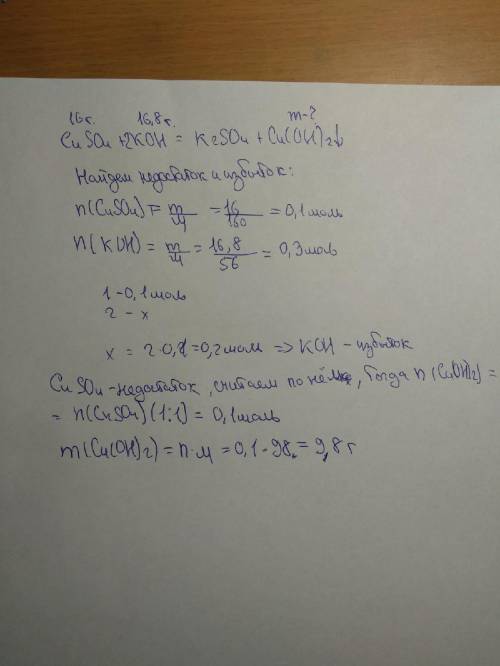 16г. 16,8г. m-?
CuSO₄+2KOH = K₂SO₄+Cu(OH)₂↓
Найдем недостаток и избыток:
n(CuSO₄) = m/M = 16/160 = 0,1моль
n(KOH) = m/M = 16,8/56 = 0,3моль
1-0,1моль
2 - x
x = 2·0,1=0,2моль => KOH - избыток
CuSO₄-недостаток, считаем по нему, Тогда n(Cu(OH)₂) =
= n(CuSO₄)(1:1) = 0,1моль
m(Cu(OH)₂) = n·M = 0,1·98 = 9,8г